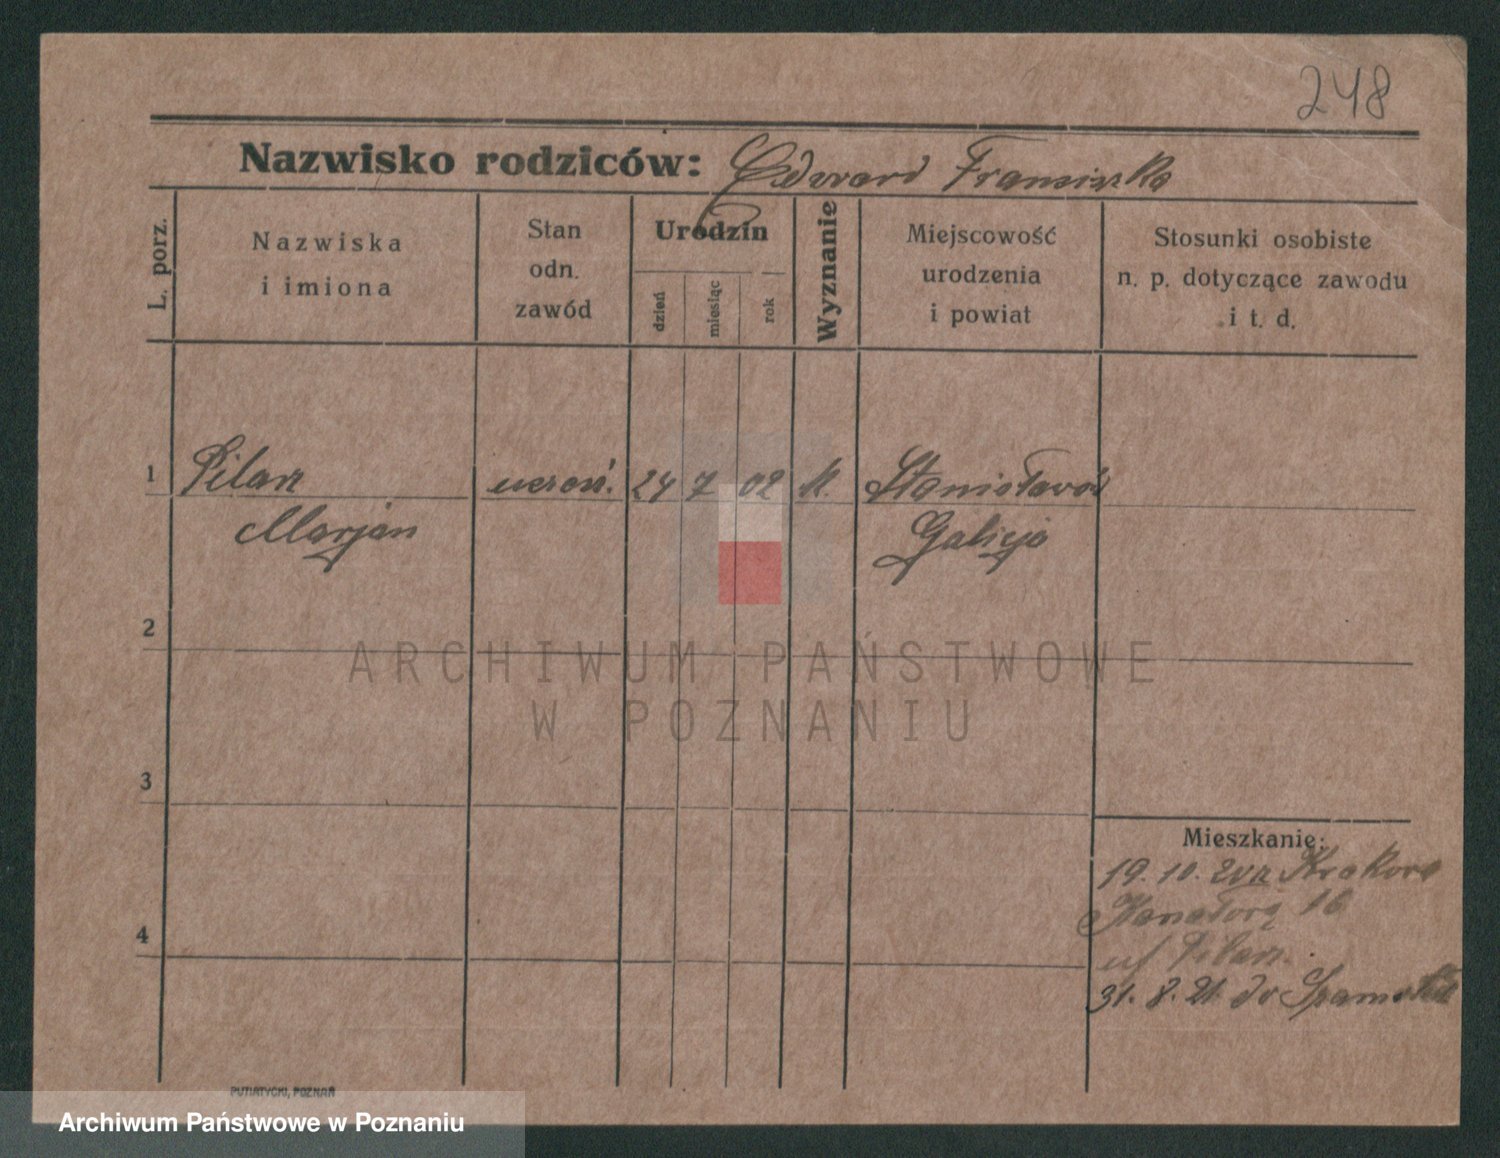 248
Nazwisko rodziców: Edward Franciszka
L. porz.
Nazwiska
i imiona
Stan
odn.
zawód
Urodzin
dzień
miesiąc
rok
Wyznanie
Miejscowość
urodzenia
i powiat
Stosunki osobiste
n. p. dotyczące zawodu
i t. d.
1 Pilarz 24 7 02 k. Stanisławów
Marjan Galicja
2
ARCHIWUM PAŃSTWOWE
W POZNANIU
3
Mieszkanie:
19. 10. Krakowa
16
4
u/ Pilarz
31. 8. 21. do
PUTIATYCKI, POZNAŃ
Archiwum Państwowe w Poznaniu